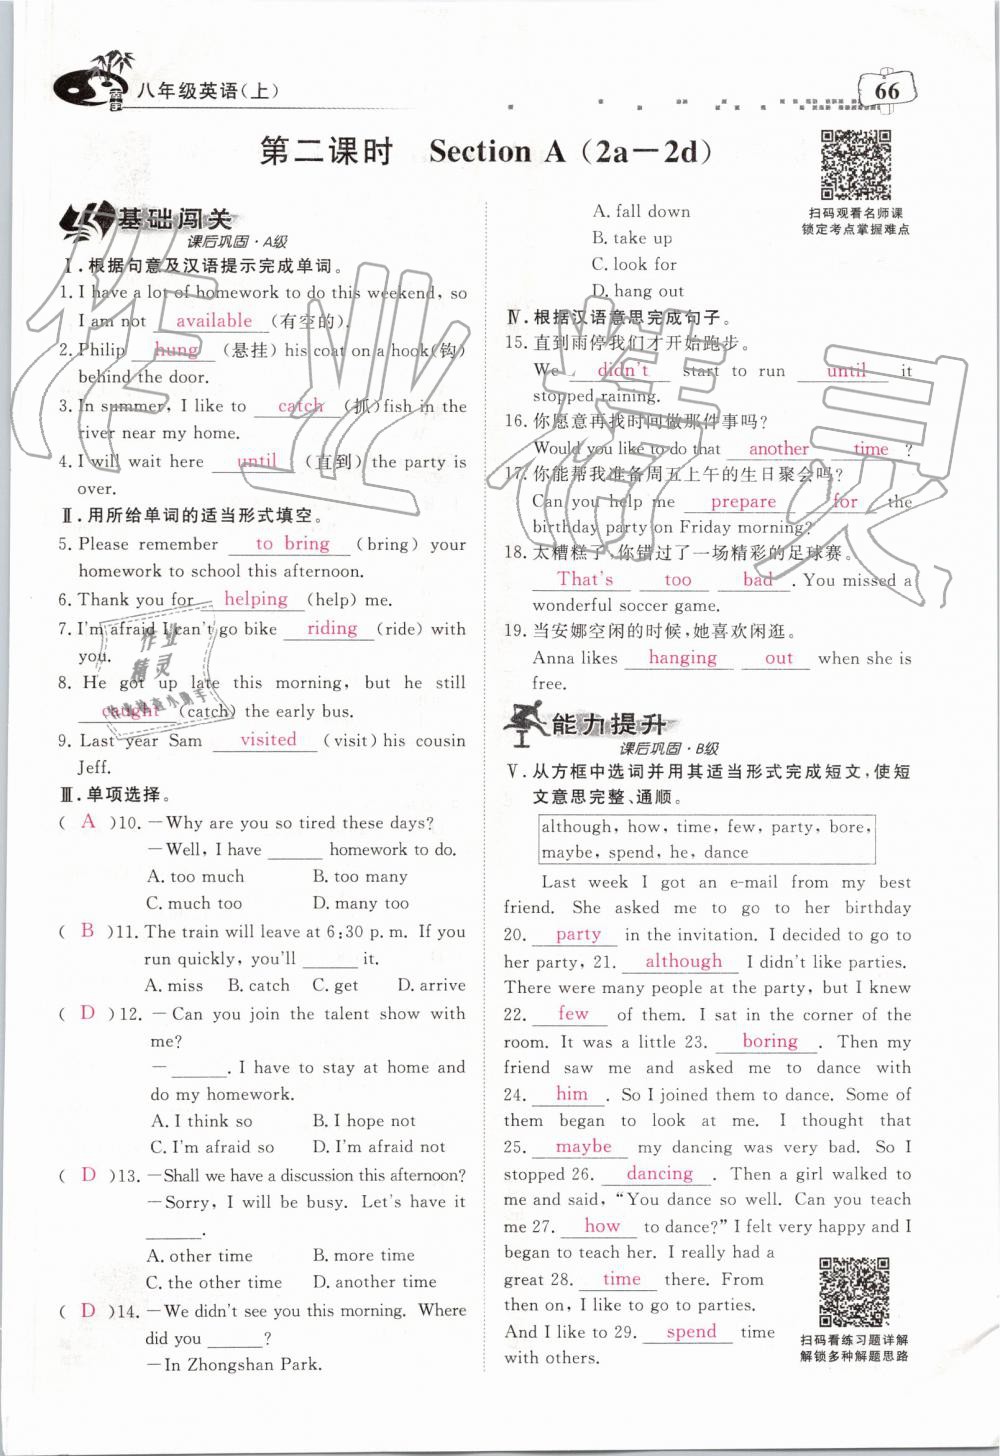 八年级英语(上)
66
第二课时 Section A (2a—2d)
扫码观看名师课
锁定考点掌握难点
基础闯关
课后巩固·A级
Ⅰ.根据句意及汉语提示完成单词。
1. I have a lot of homework to do this weekend, so
I am not available (有空的).
2. Philip hung (悬挂) his coat on a hook(钩)
behind the door.
3. In summer, I like to catch (抓) fish in the
river near my home.
4. I will wait here until (直到) the party is
over.
Ⅱ.用所给单词的适当形式填空。
5. Please remember to bring (bring) your
homework to school this afternoon.
6. Thank you for helping (help) me.
7. I'm afraid I can't go bike riding (ride) with
you.
8. He got up late this morning, but he still
caught (catch) the early bus.
9. Last year Sam visited (visit) his cousin
Jeff.
Ⅲ.单项选择。
( A )10. —Why are you so tired these days?
—Well, I have ______ homework to do.
A. too much B. too many
C. much too D. many too
( B )11. The train will leave at 6:30 p. m. If you
run quickly, you'll ______ it.
A. miss B. catch C. get D. arrive
( D )12. —Can you join the talent show with
me?
—______. I have to stay at home and
do my homework.
A. I think so B. I hope not
C. I'm afraid so D. I'm afraid not
( D )13. —Shall we have a discussion this afternoon?
—Sorry, I will be busy. Let's have it
______.
A. other time B. more time
C. the other time D. another time
( D )14. —We didn't see you this morning. Where
did you ______?
—In Zhongshan Park.
A. fall down
B. take up
C. look for
D. hang out
Ⅳ.根据汉语意思完成句子。
15. 直到雨停我们才开始跑步。
We didn't start to run until it
stopped raining.
16. 你愿意再找时间做那件事吗?
Would you like to do that another time ?
17. 你能帮我准备周五上午的生日聚会吗?
Can you help me prepare for the
birthday party on Friday morning?
18. 太糟糕了,你错过了一场精彩的足球赛。
That's too bad . You missed a
wonderful soccer game.
19. 当安娜空闲的时候,她喜欢闲逛。
Anna likes hanging out when she is
free.
能力提升
课后巩固·B级
Ⅴ.从方框中选词并用其适当形式完成短文,使短
文意思完整、通顺。
although, how, time, few, party, bore,
maybe, spend, he, dance
Last week I got an e-mail from my best
friend. She asked me to go to her birthday
20. party in the invitation. I decided to go to
her party, 21. although I didn't like parties.
There were many people at the party, but I knew
22. few of them. I sat in the corner of the
room. It was a little 23. boring . Then my
friend saw me and asked me to dance with
24. him . So I joined them to dance. Some of
them began to look at me. I thought that
25. maybe my dancing was very bad. So I
stopped 26. dancing . Then a girl walked to
me and said, "You dance so well. Can you teach
me 27. how to dance?" I felt very happy and I
began to teach her. I really had a
great 28. time there. From
then on, I like to go to parties.
And I like to 29. spend time
with others.
扫码看练习题详解
解锁多种解题思路
作业精灵
作业精灵
作业检查小助手